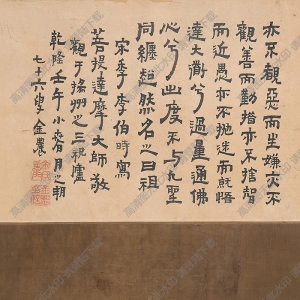 亦不覩惡而生嫌亦不
觀善而勤措亦不捨智
而近愚亦不抛迷而就悟
達大道兮過量通佛
心兮出度不与凡聖
同纏超然名之曰祖
宋李伯時寫
菩提達摩大師敬
觀于揚州之三祝庵
乾隆壬午小春月之朔
七十六叟金農